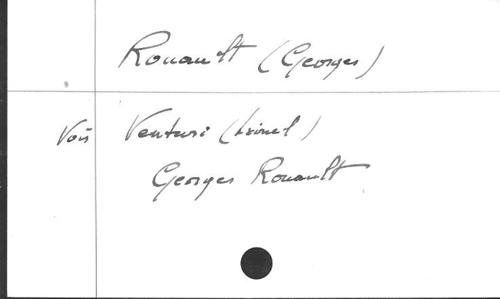 Rouault (Georges)
Voir Venturi (Lionel)
Georges Rouault